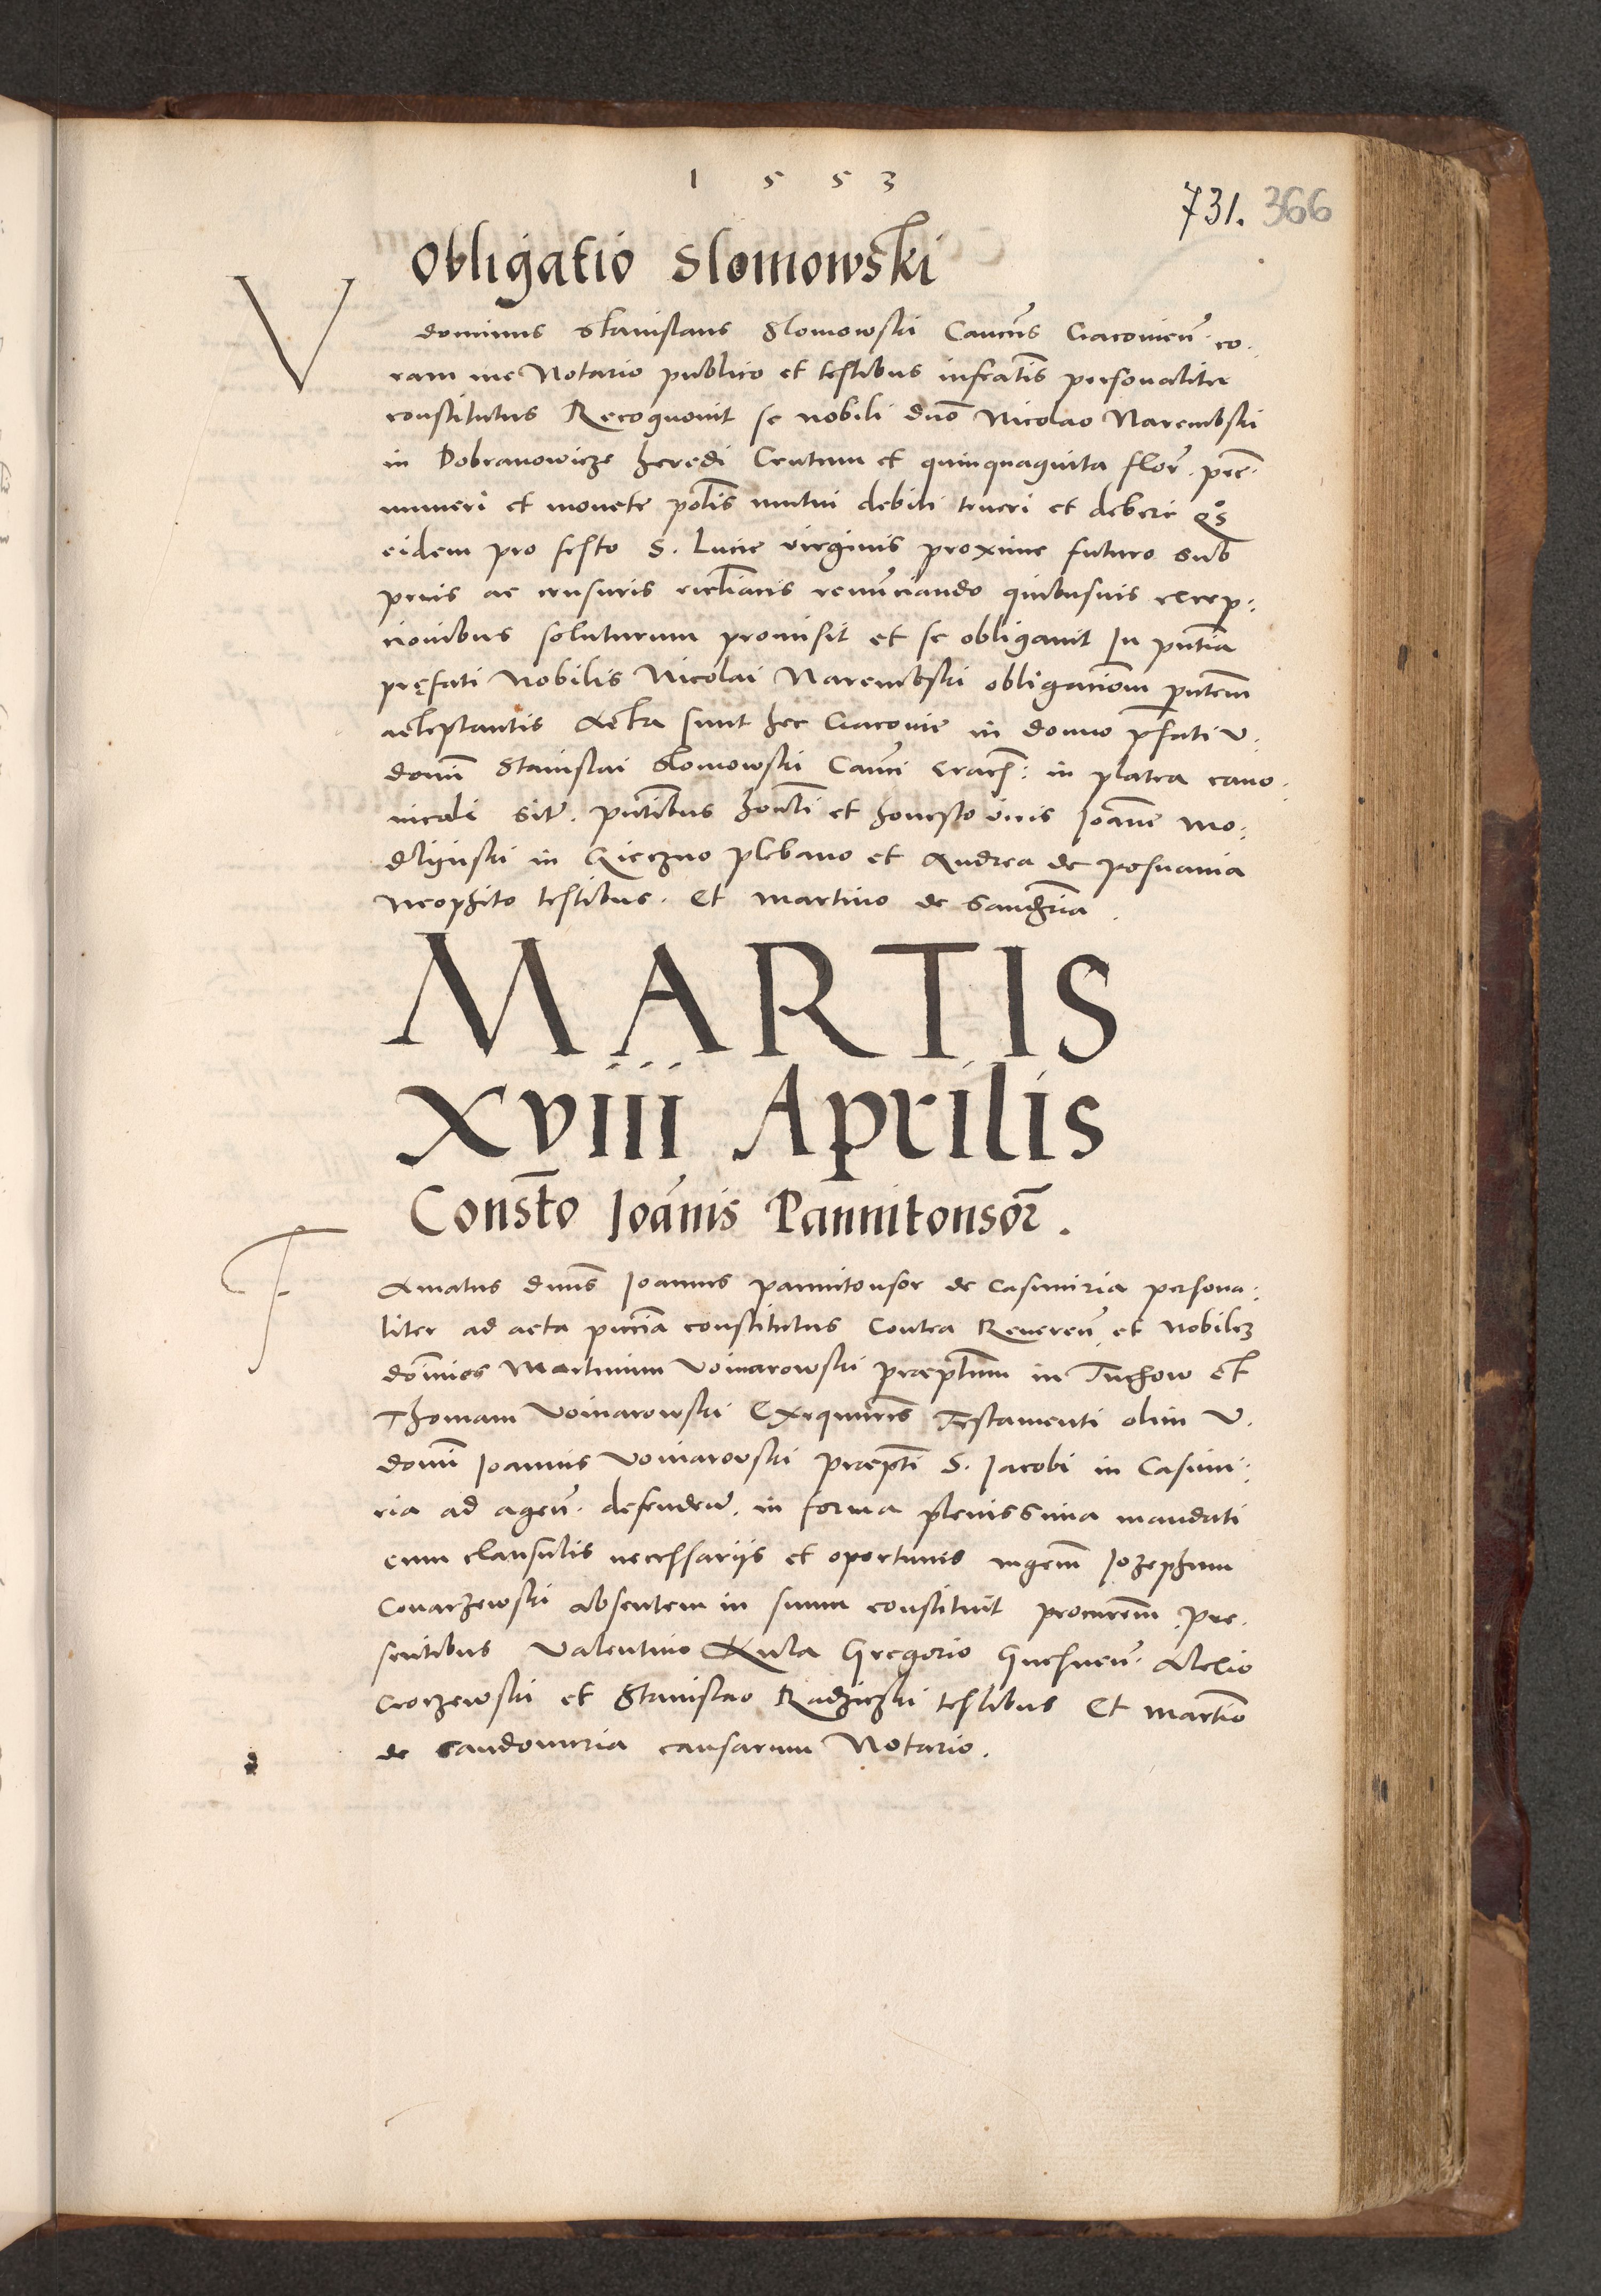 1553
731. 366
Obligatio Slomowski
V dominus Stanislaus Slomowski Cancus Cracovien. co:
ram me Notario publico et testibus infratis personaliter
constitutus Recognovit se nobili dno Nicolao Narembski
in Dobranowicze heredi Centum et quinquaginta flor. pec.
numeri et monete polis mutui debiti teneri et debere Qs
eidem pro festo S. Lucie virginis proxime futuro sub
penis ac censuris eccliacis renunciando quibusvis excep:
cionibus soluturum promisit et se obligavit In pntia
pręfati Nobilis Nicolai Narembski obligationem pntem
acceptantis Acta sunt hec Cracovie in domo pfati v.
domi Stanislai Slomowski Canci Crach: in platea cano:
nicali sit. pntibus honli et honesto viris Joanne Mo:
dliynski in Gieczno plebano et Andrea de Posnania
Neophito testibus. Et Martino de Sandria.
MARTIS
XVIII Aprilis
Consto Joanis Pannitonsor.
FAmatus dnus Joannes pannitonsor de Casimiria persona:
liter ad acta pncia constitutus Contra Reveren. et Nobiles
dominos Martinum Voinarowski praeptum in Tuchow et
Thomam Voinarowski Exequutres Testamenti olim V.
domi Joannis Voinarowski praepti S. Jacobi in Casimi:
ria ad agen. defenden. in forma plenissima mandati
cum clausulis necessariis et oportunis ingenm Jozephum
Conarzewski absentem in suum constituit procurem. pre.
sentibus Valentino Kula Gregorio Gnesnen. Alexio
Croczewski et Stanislao Radziczki testibus Et Martino
de Sandomiria causarum Notario.